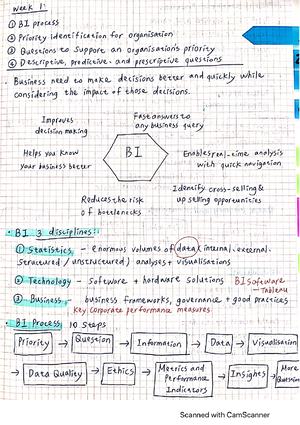 week 1:
① BI process
② Priority identification for organisation
③ Questions to support an organisation's priority
④ Descriptive, predictive and prescriptive questions
• Business need to make decisions better and quickly while
considering the impact of those decisions.
Improves
decision making
Fast answers to
any business query
Helps you know
your business better
BI
Enables real-time analysis
with quick navigation
Reduces the risk
of bottlenecks
Identify cross-selling &
up selling opportunities
• BI 3 disciplines:
① Statistics - enormous volumes of data (internal, external,
structured / unstructured) analyses + visualisations
② Technology - software + hardware solutions BI software
- Tableau
③ Business - business frameworks, governance + good practices
key corporate performance measures
• BI Process 10 Steps
Priority → Question → Information → Data → Visualisation
→ Data Quality → Ethics → Metrics and Performance Indicators → Insights → More
Scanned with CamScanner